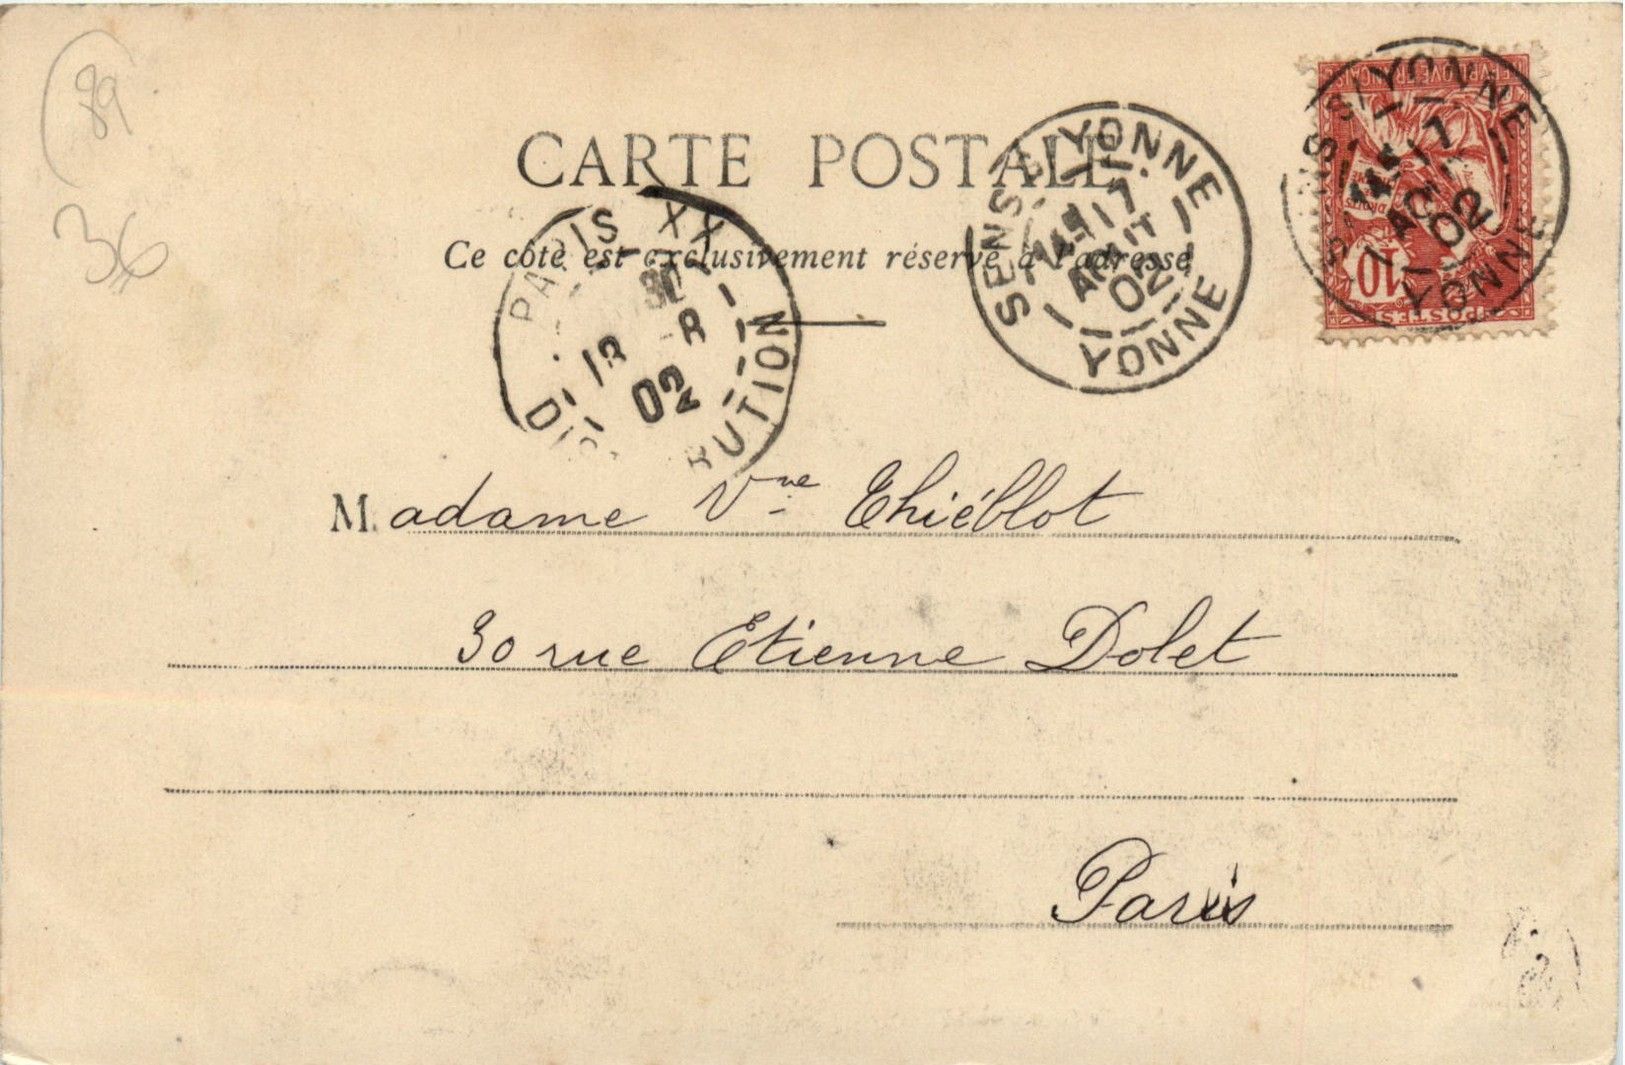 89
36
CARTE POSTALE
Ce côté est exclusivement réservé à l'adresse
PARIS XX
18 - 8
02
DISTRIBUTION
SENS S/YONNE
17
AOUT
02
YONNE
SENS S/YONNE
17
AOUT
02
YONNE
10
POSTES
Madame Vve Thiéblot
30 rue Etienne Dolet
Paris